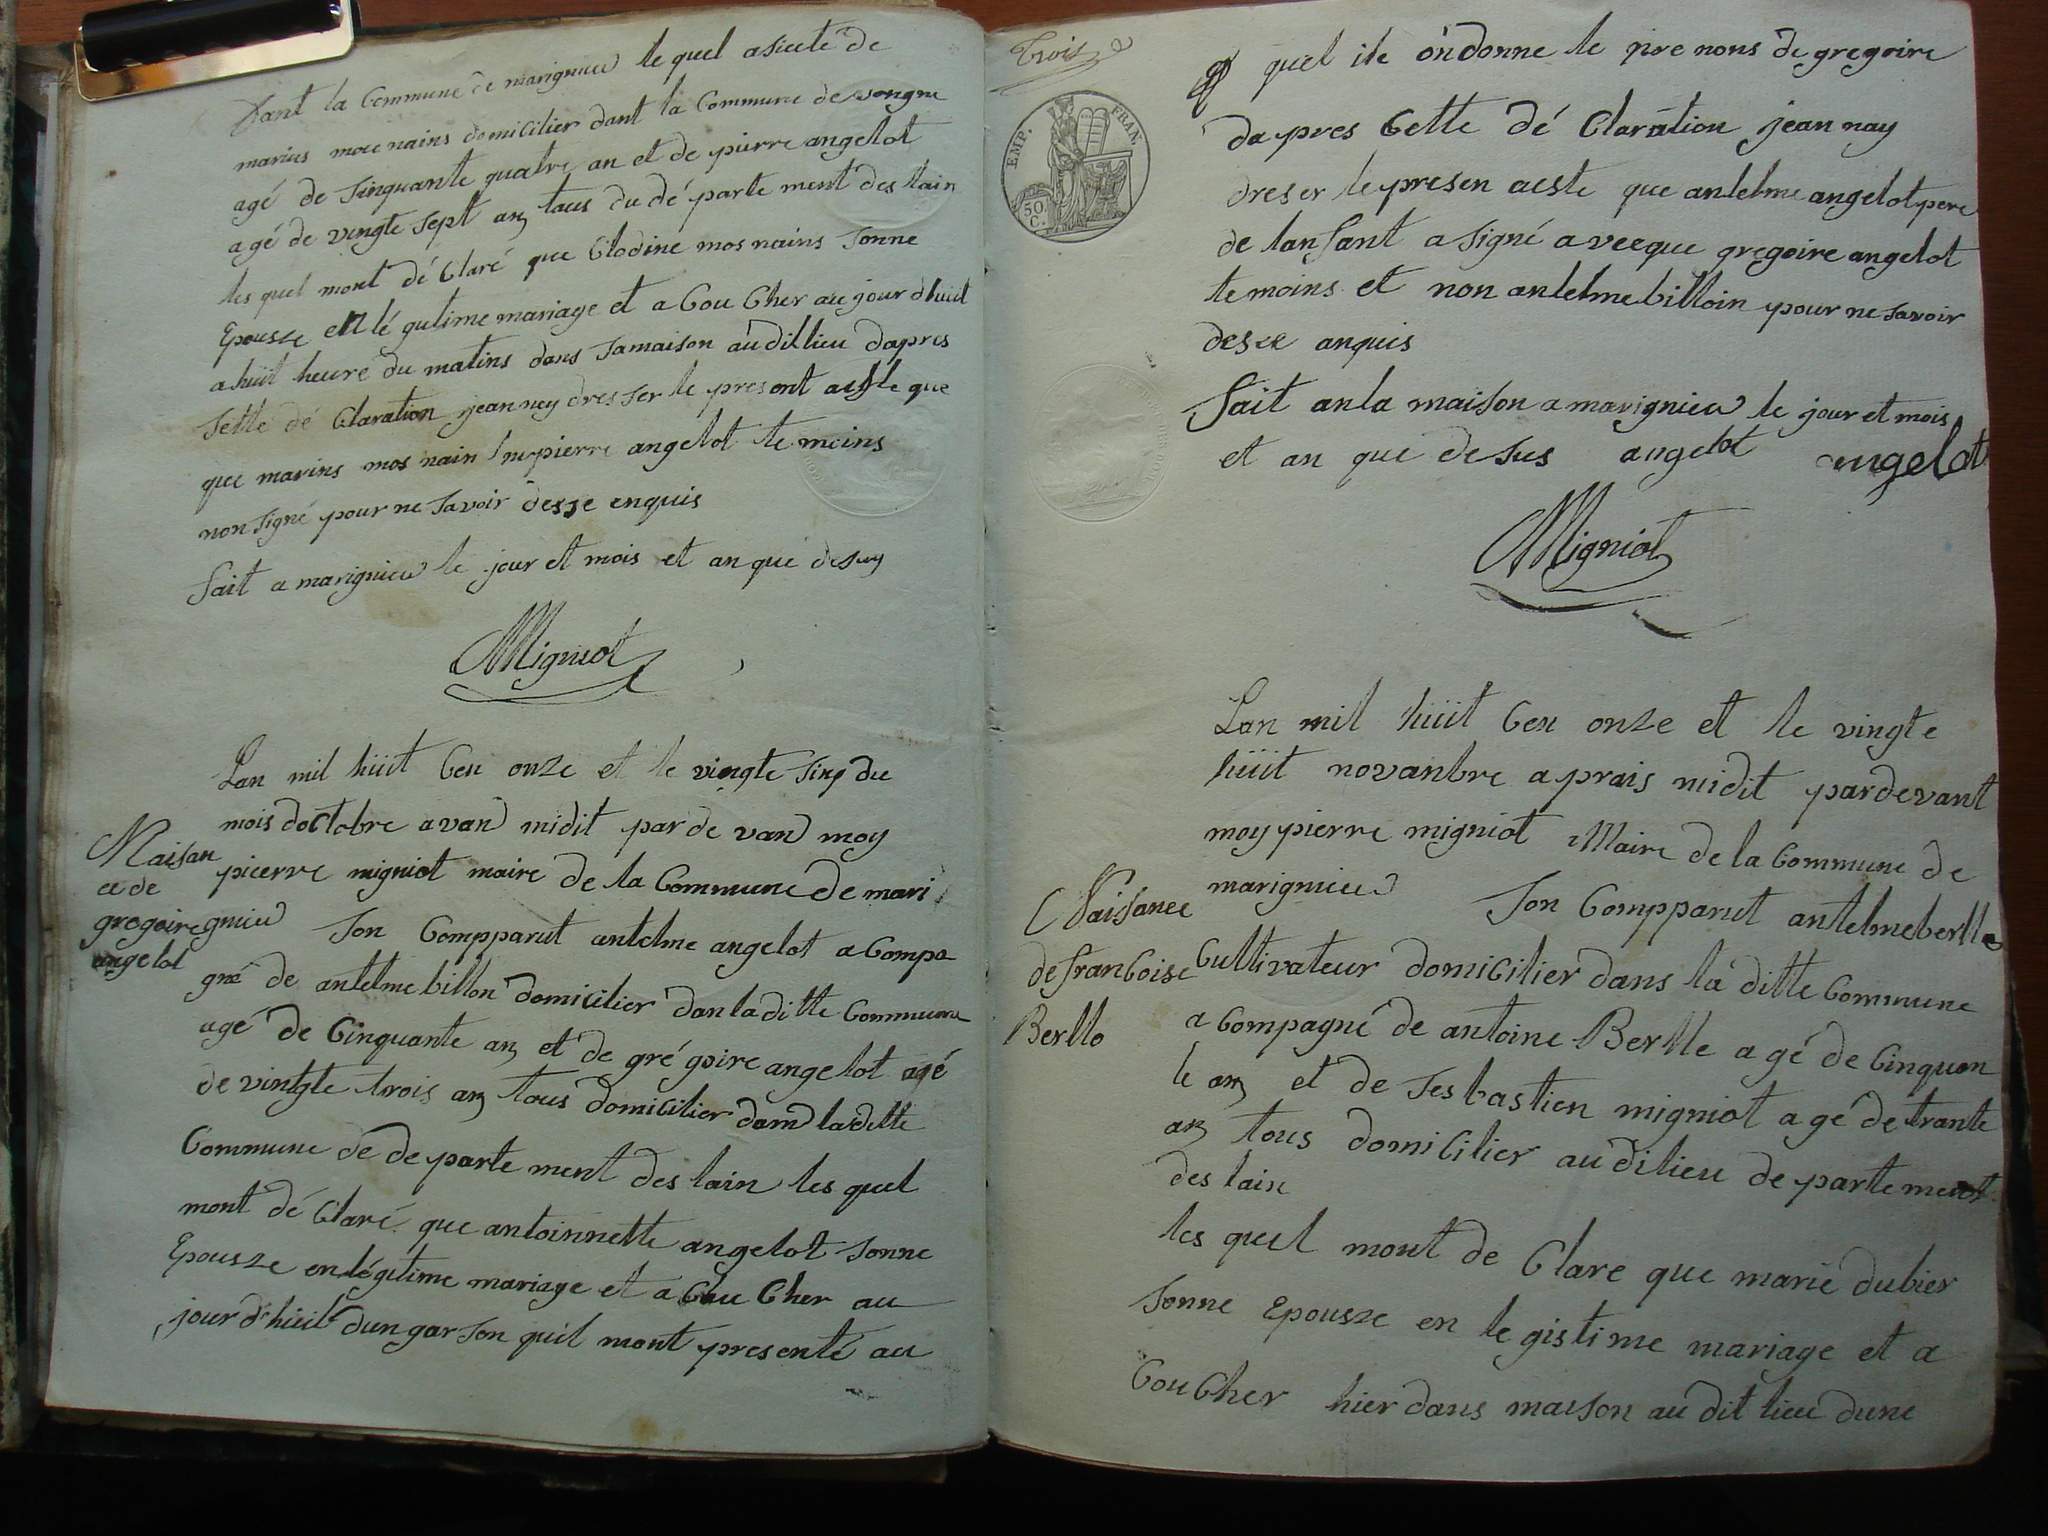 Dant la Commune de marignieu le quel asiscté de
marius mocnains domicilier dant la Commune de songne
agé de sinquante quatre an et de pierre angelot
agé de vingte sept an tous du dé parte ment des lain
les quel mont dé Claré que Clodine mosnains Sonne
Epousze en lé gutime mariage et a Cou Cher au jour dhuit
a huit heure du matins dans Samaison au dit lieu dapres
Sette dé Claration jean ney dresser le present acste que
que marins mosnain ny pierre angelot te moins
non signé pour ne Savoir desse enquis
fait a marignieu le jour et mois et an que desuy
Migniot
Lan mil huit Cen onze et le vingte sinq du
mois doctobre avan midit par de van moy
pierre migniot maire de la Commune de mari
gnieu Son Compparut antelme angelot a Compa
gné de antelme billon domicilier dan la ditte Commune
agé de Cinquante an et de gré goire angelot agé
de vintgte trois an tous domicilier dans laditte
Commune de de parte ment des lain les quel
mont dé Claré que antoinnette angelot Sonne
Epousze en légitime mariage et a Cou Cher au
jour d'huit dun garson quil mont presenté au
Naisan
ce de
gregoire
angelot
Trois
EMP. FRAN.
50 C.
quel ile on donne le pre nons de gregoire
da pres Cette dé Claration jean nay
dreser le presen aciste que antelme angelot pere
de lanfant a signé avecque gregoire angelot
temoins et non antelme billoin pour ne savoir
desce anquis
fait an la maison a marignieu le jour et mois
et an que desus angelot angelot
Migniot
Lan mil huit Cen onze et le vingte
huit novanbre aprais midit pardevant
moy pierre migniot Maire de la Commune de
marignieu Son Compparut antelme berllo
Cultivateur domicilier dans la ditte Commune
a Compagné de antoine Berlle agé de Cinquan
te an et de Sesbastien migniot agé de trante
an tous domicilier au dilieu de partement
des lain
les quel mont de Clare que marie dubier
Sonne Epousze en le gistime mariage et a
Cou Cher hier dans maison au dit lieu dune
Naisance
de francoise
Berllo